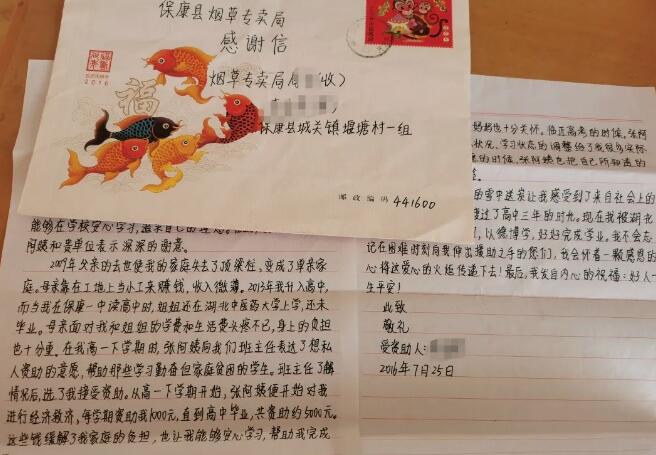 保康县烟草专卖局
感谢信
烟草专卖局局
收)
保康县城关镇堰塘村一组
邮政编码 441600
2016
福
能够在学校安心学习,
阿姨和贵单位表示深深的谢意。
2007年父亲的去世使我的家庭失去了顶梁柱,变成了单亲家
庭。母亲靠在工地上当小工来赚钱,收入微薄。2013年我升入高中,
而当我在保康一中读高中时,姐姐还在湖北中医药大学上学,还未
毕业。母亲面对我和姐姐的学费和生活费头疼不已,身上的负担
也十分重。在我高一下学期时,张阿姨向我们班主任表达了想私
人资助的意愿,帮助那些学习勤奋但家庭贫困的学生。班主任了解
情况后,选了我接受资助。从高一下学期开始,张阿姨便开始对我
进行经济救济,每学期资助我1000元,直到高中毕业,共资助约5000元。
这些钱缓解了我家庭的负担,也让我能够安心学习,帮助我完成
妈妈也十分关怀。临近高考的时候,张阿
状况、学习状态的调整给了我很多实际
的时候,张阿姨也把自己所知道的
的雪中送炭让我感受到了来自社会上的
度过了高中三年的时光。现在我被湖北
,以德博学,好好完成学业。我不会忘
记在困难时刻向我伸出援助之手的您们,我会怀着一颗感恩的
心将这爱心的火炬传递下去!最后,我发自内心的祝福:好人一
生平安!
此致
敬礼
受资助人:
2016年7月25日